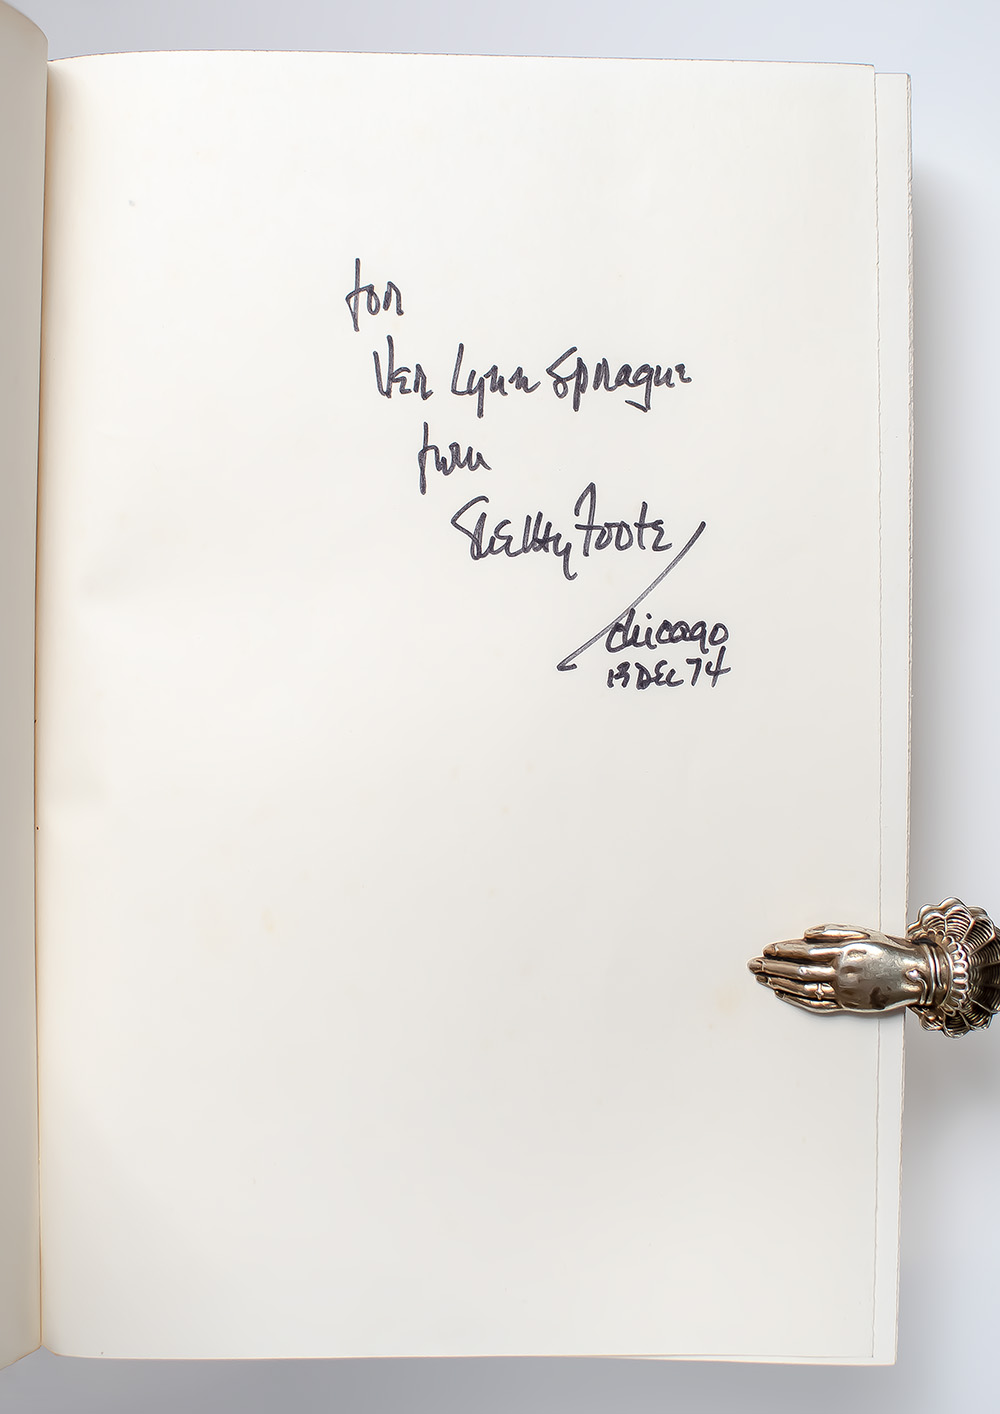 for
Ver Lynn Sprague
from
Shelby Foote
Chicago
13 DEC 74